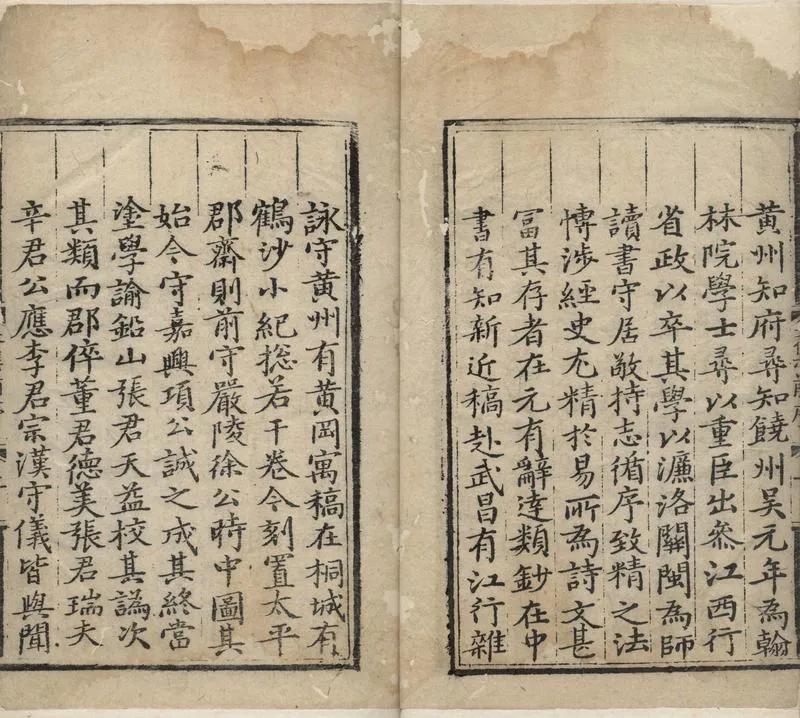 黄州知府尋知饒州吴元年為翰
林院學士尋以重臣出叅江西行
省政以卒其學以濂洛關閩為師
讀書守居敬持志循序致精之法
愽涉經史尤精於易所為詩文甚
富其存者在元有辭達類鈔在中
書有知新近稿赴武昌有江行雜
詠守黄州有黄岡寓稿在桐城有
鶴沙小紀捴若干卷今刻置太平
郡齋則前守嚴陵徐公時中圖其
始今守嘉興項公誠之成其終當
塗學諭鉛山張君天益校其譌次
其類而郡倅董君德美張君瑞夫
辛君公應李君宗漢守儀皆與聞